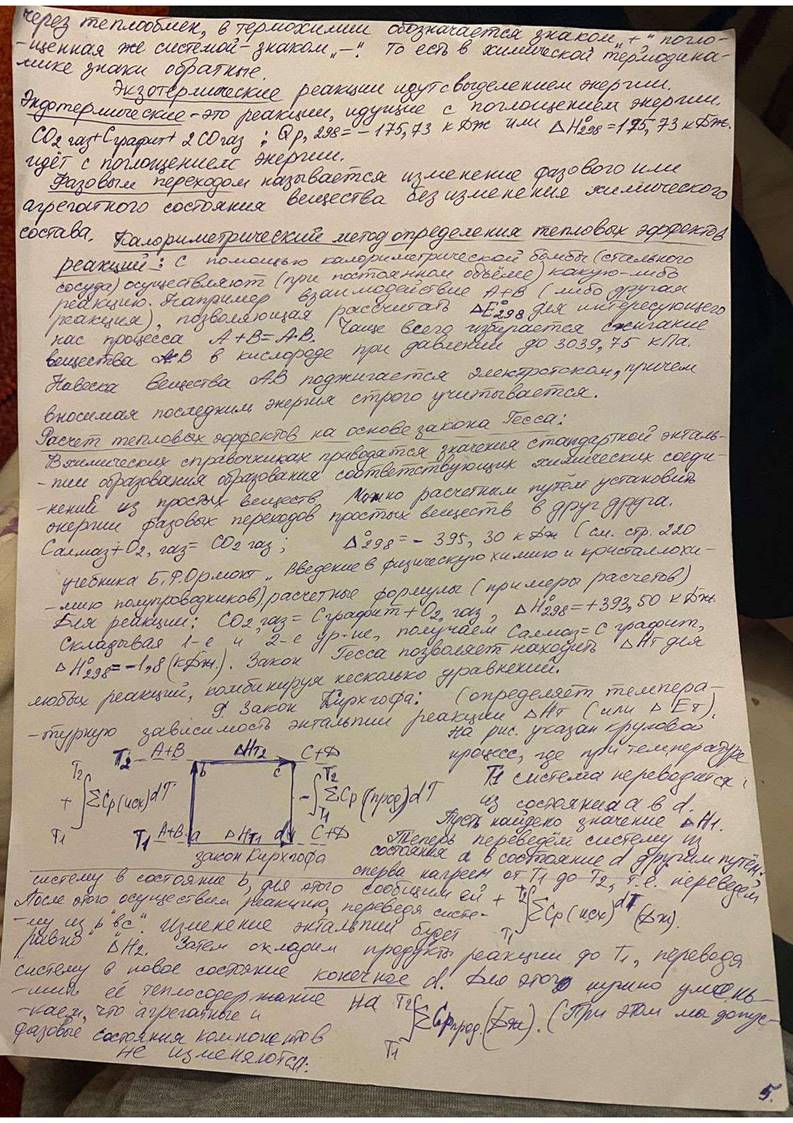 через теплообмен, в термохимии обозначается знаком „+" погло-
-щенная же системой - знаком „–". То есть в химической термодина-
-мике знаки обратные.
Экзотермические реакции идут с выделением энергии.
Эндотермические - это реакции, идущие с поглощением энергии.
CO2 газ + С графит + 2CO газ ; Qp, 298 = – 175,73 кДж или ΔH°298 = 175,73 кДж.
идёт с поглощением энергии.
Фазовым переходом называется изменение фазового или
агрегатного состояния вещества без изменения химического
состава. Калориметрический метод определения тепловых эффектов
реакций: с помощью калориметрической бомбы (стального
сосуда) осуществляют (при постоянном объёме) какую-либо
реакцию. Например взаимодействие A+B (либо другая
реакция), позволяющая рассчитать ΔE°298 для интересующего
нас процесса A+B=A·B. Чаще всего избирается сжигание
вещества AB в кислороде при давлении до 3039,75 кПа.
Навеска вещества AB поджигается электротоком, причем
вносимая последним энергия строго учитывается.
Расчет тепловых эффектов на основе закона Гесса:
В химических справочниках приводятся значения стандартной энталь-
-пии образования образования соответствующих химических соеди-
-нений из простых веществ. Можно расчетным путем установить
энергии фазовых переходов простых веществ в друг друга.
C алмаз + O2, газ = CO2 газ ; Δ°298 = – 395,30 кДж (см. стр. 220
учебника Б.Ф.Ормонт „Введение в физическую химию и кристаллохи-
-мию полупроводников) расчетные формулы (примеры расчетов)
Для реакции: CO2, газ = C графит + O2, газ, ΔH°298 = +393,50 кДж
Складывая 1-е и 2-е ур-ие, получаем C алмаз = C графит,
ΔH°298 = –1,8 (кДж.). Закон Гесса позволяет находить ΔHT для
любых реакций, комбинируя несколько уравнений.
Закон Кирхгофа: (определяет темпера-
-турную зависимость энтальпии реакции ΔHT (или ΔET).
На рис. указан круговой
процесс, где при температуре
T1 система переводится
из состояния a в d.
Пусть найдено значение ΔH1.
T2 A+B ΔHT2 C+D
b c
+ ∫ T2 T1 ΣCp(исх)dT – ∫ T2 T1 ΣCp(прод)dT
T1 A+B a ΔHT1 d C+D
закон Кирхгофа
Теперь переведём систему из
состояния a в состояние d другим путём:
сперва нагреем от T1 до T2, т.е. переведём
систему в состояние b, для этого сообщим ей + ∫ T2 T1 ΣCp(исх)dT (Дж).
После этого осуществим реакцию, переведя систе-
-му из b "вc". Изменение энтальпии будет
равно ΔH2. Затем охладим продукты реакции до T1, переводя
систему в новое состояние конечное d. Для этого нужно умень-
-шить её теплосодержание на ∫ T2 T1 ΣCp прод. (Дж). (При этом мы допус-
-каем, что агрегатные и
фазовые состояния компонентов
не изменяются.
5.